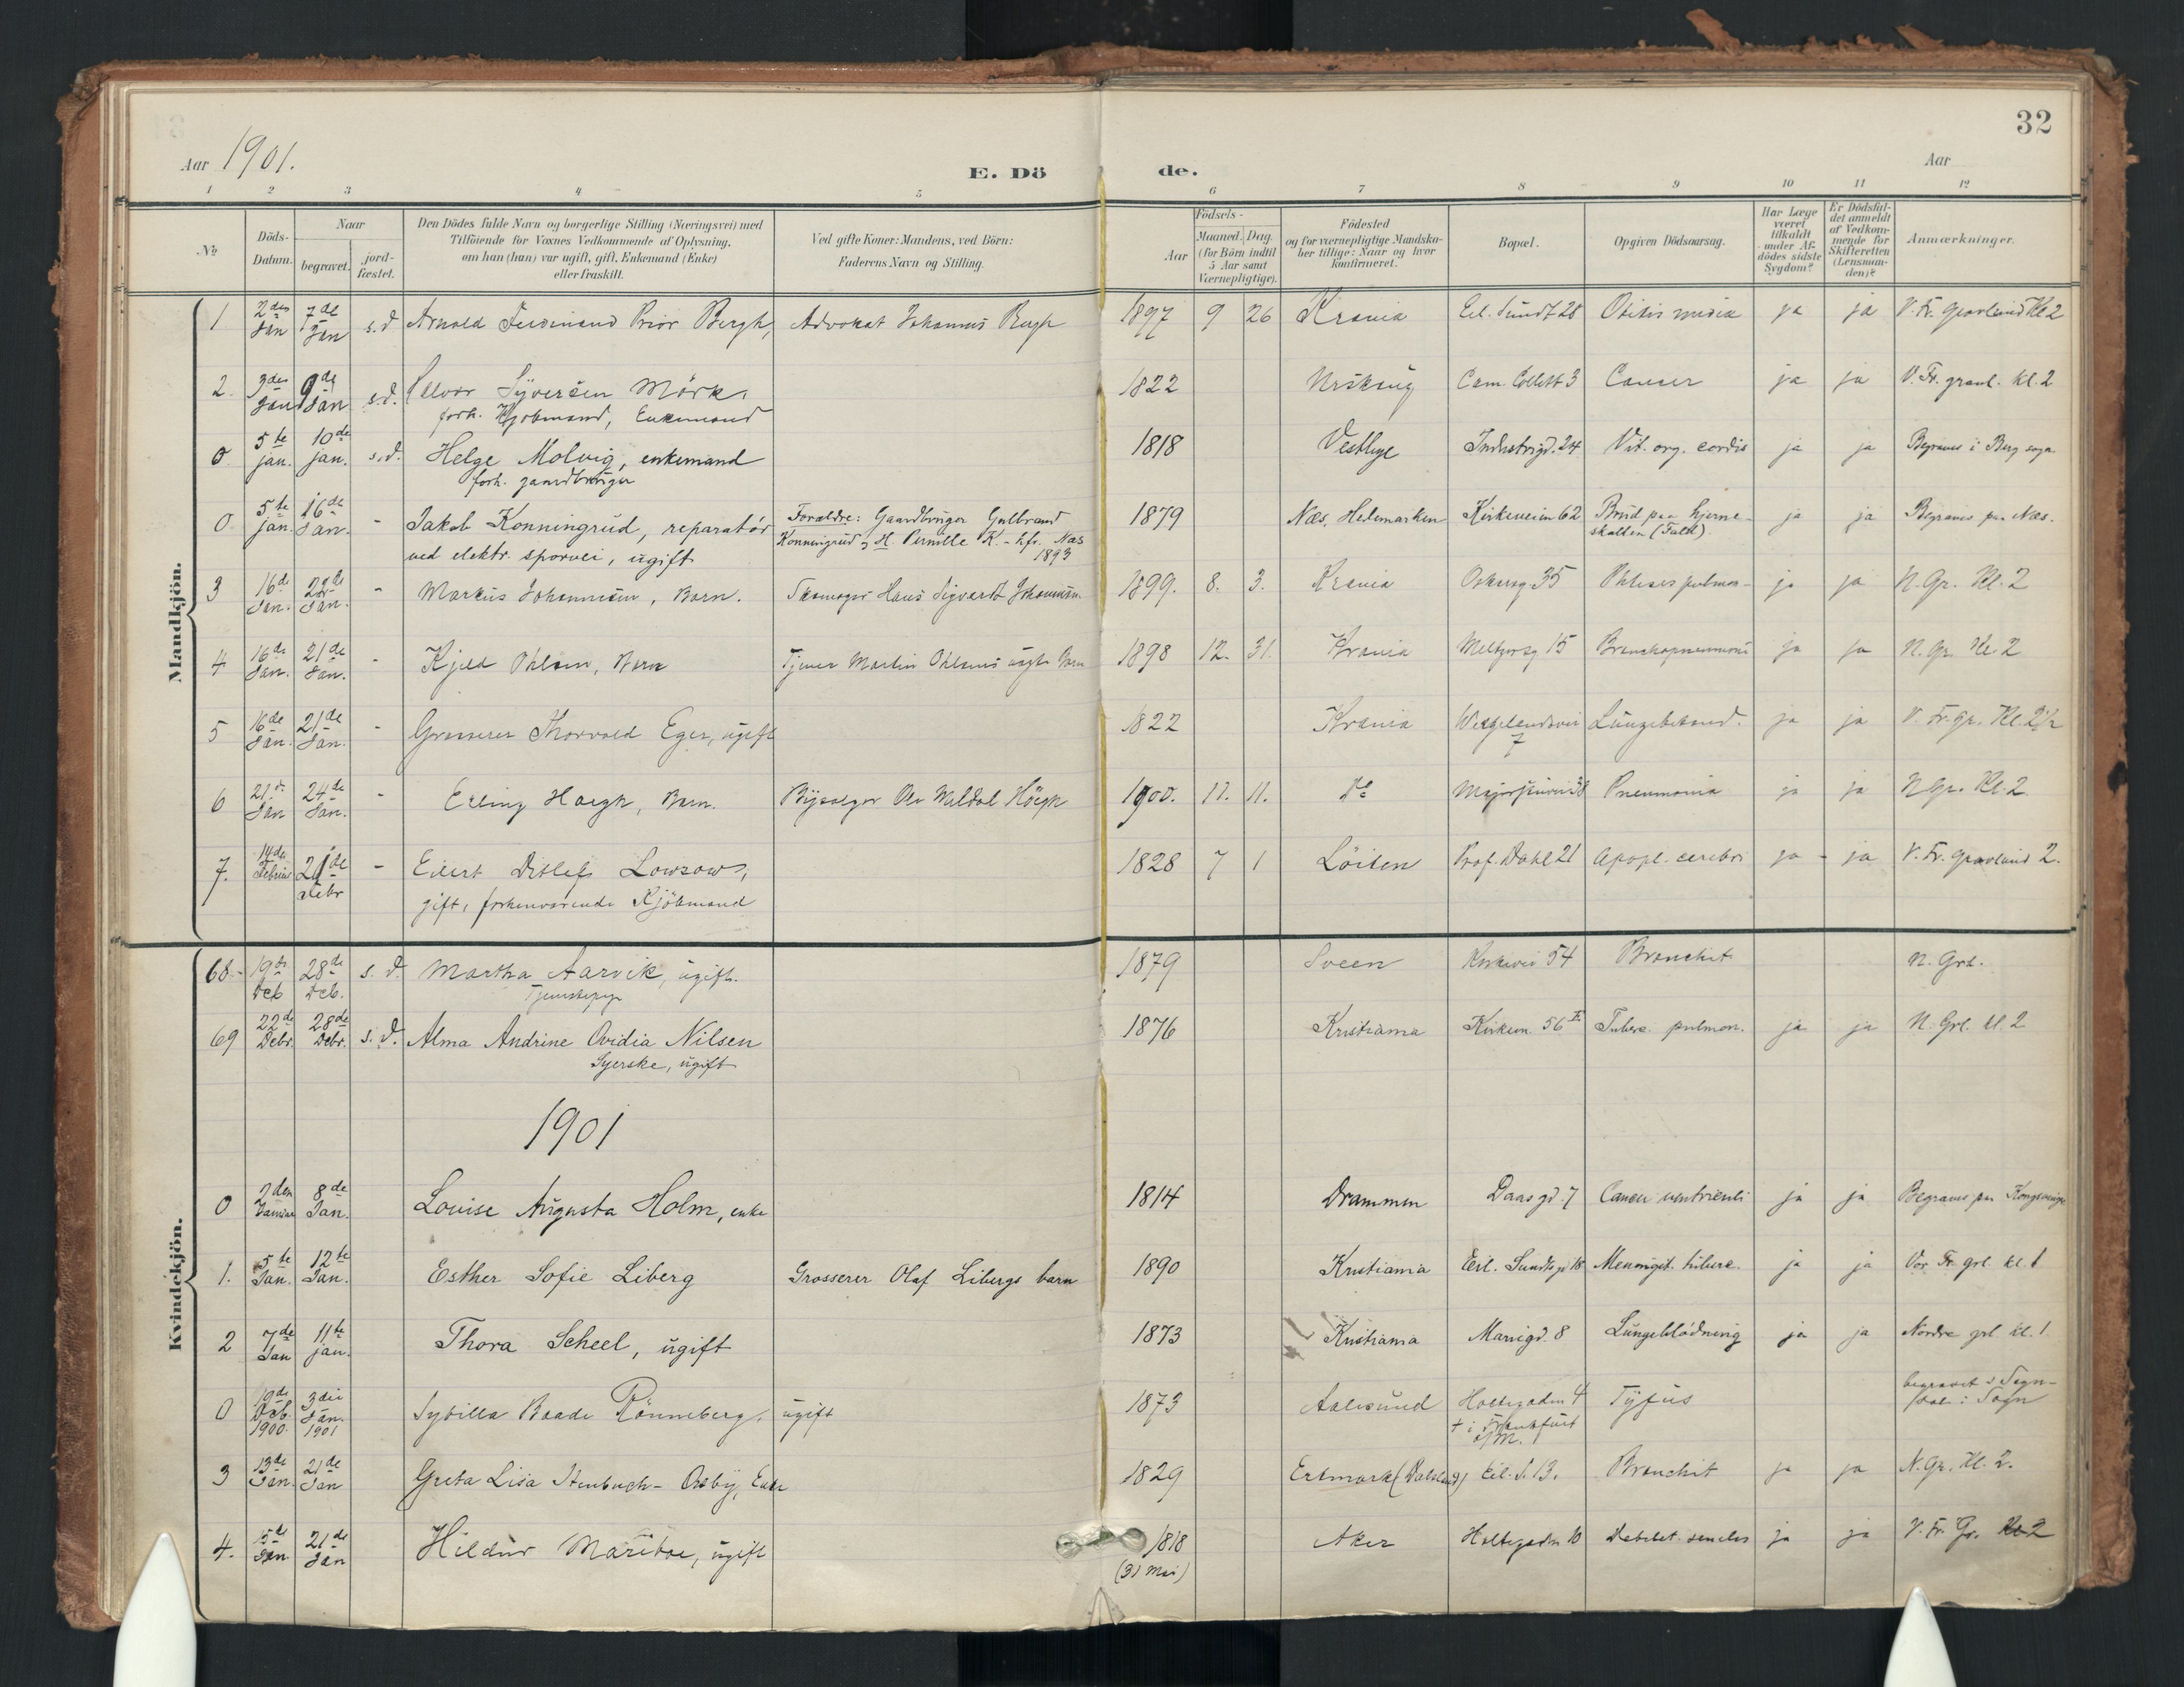 32
Aar 1901.
E. Dö de.
Aar
1 2 3 4 5 6 7 8 9 10 11 12
No
Döds-Datum.
Naar
begravet.
jord-fæstet.
Den Dödes fulde Navn og borgerlige Stilling (Næringsvei) med
Tilföiende for Voxnes Vedkommende af Oplysning,
om han (hun) var ugift, gift, Enkemand (Enke)
eller fraskilt.
Ved gifte Koner: Mandens, ved Börn:
Faderens Navn og Stilling.
Födsels-
Aar
Maaned. Dag.
(for Börn indtil
5 Aar samt
Værnepligtige).
Födested
og for værnepligtige Mandska-
ber tillige: Naar og hvor
konfirmeret.
Bopæl.
Opgiven Dödsaarsag.
Har Læge
været
tilkaldt
under Af-
dödes sidste
Sygdom?
Er Dödsfal-
det anmeldt
af Vedkom-
mende for
Skifteretten
(Lensman-
den)?
Anmærkninger.
Mandkjön.
1 2den Jan 7de Jan s.d Arnold Ferdinand Prior Bergh, Advokat Johannes Bergh 1897 9 26 Krania Eil. Sundt 28 Otitis media ja ja V. Fr. Gravlund Kl 2
2. 3den Jan 9de Jan s.d. Syversen Mörk, 1822 Urskoug Cam. Collett 3 Cancer ja ja V. Fr. gravl. kl. 2
forh. Kjöbmand, Enkemand
0 5te jan. 10de jan. s.d. Helge Molvig, enkemand 1818 Vestbye Industrigd. 24 Vit. org. cordis ja ja Begraves i Berg sogn
forh. gaardbruger
0 5te jan. 16de Jan. - Jakob Konningrud, reparatör Forældre: Gaardbruger Gulbrand 1879 Næs, Hedemarken Kirkeveien 62 Brud paa hjerne- ja ja Begraves paa Næs.
ved elektr. sporvei, ugift Konningrud og H. Pernille K. - hfr. Næs 1893 skallen (Fald).
3 16de Jan. 22de Jan. - Markus Johannesen, Barn. Skomager Hans Sigvardt Johannesen. 1899. 8. 3. Krania Oskarsg. 35 Phtisis pulmon. ja ja N. Gr. Kl. 2
4 16de Jan. 21de Jan. - Kjeld Ohlsen, Barn Tjener Martin Ohlsens ægte Barn 1898 12. 31. Krania Meltzersg 15 Bronchopneumoni ja ja N. Gr. Kl. 2
5 16de Jan. 21de Jan. - Grosserer Thorvald Eger, ugift 1822 Krania Wergelandsvei 7 Lungebetænd. ja ja V. Fr. Gr. Kl. 2½
6 21de Jan 24de Jan. - Erling Høegh, Barn. Ole Høegh 1900. 11. 11. do Majorstuvei 38 Pneumonia ja ja N Gr. Kl. 2
7. 14de Februar 21de Febr - Eilert Ditlef Lowzow, 1828 7 1 Löiten Prof. Dahl 21 Apopl. cerebri ja - ja V. Fr. Gravlund 2.
gift, forhenværende Kjöbmand
Kvindekjön.
68.- 19de Deb 28de Deb. s. d. Martha Aarvik, ugift. 1879 Sveen Kirkevei 54 Bronchit N. Grl.
Tjenestepige
69 22de Debr. 28de Debr. s. d. Alma Andrine Ovidia Nilsen 1876 Kristiania Kirkevn. 56 II Tuberc. pulmon. ja ja N. Grl. kl. 2
Syerske, ugift
1901
0 2den Januar 8de Jan. Louise Augusta Holm, enke 1814 Drammen Daasgd. 7 Cancer ventriculi ja ja Begraves paa Kongsvinger
1. 5te Jan. 12te Jan. Esther Sofie Liberg Grosserer Olaf Libergs barn 1890 Kristiania Eil. Sundtsgd 18 Meningit. tuberc. ja ja Vor Fr. grl. kl. 1
2 7de Jan 11te jan. Thora Scheel, ugift 1873 Kristiania Mariigd. 8 Lungeblödning ja ja Nordre grl. kl. 1.
0 19de Deb. 1900. 3die Jan. 1901 Sybilla Baade Rönneberg, ugift 1873 Aalesund Holtegaden 4 Tyfus begravet i Sogn-
† i Frankfurt a/M. i Sogn
3 13de Jan. 21de Jan Greta Lisa Stenbugh- Osby, Enke 1829 (Dalsland) Eil. S. 13. Bronchit ja ja N. Gr. Kl. 2.
4. 15de Jan 21de Jan Hildur Mariboe, ugift 1818 Aker Holtegaden 10 Debilit. senilis ja ja V. Fr. Gr. Kl 2
(31 Mai)